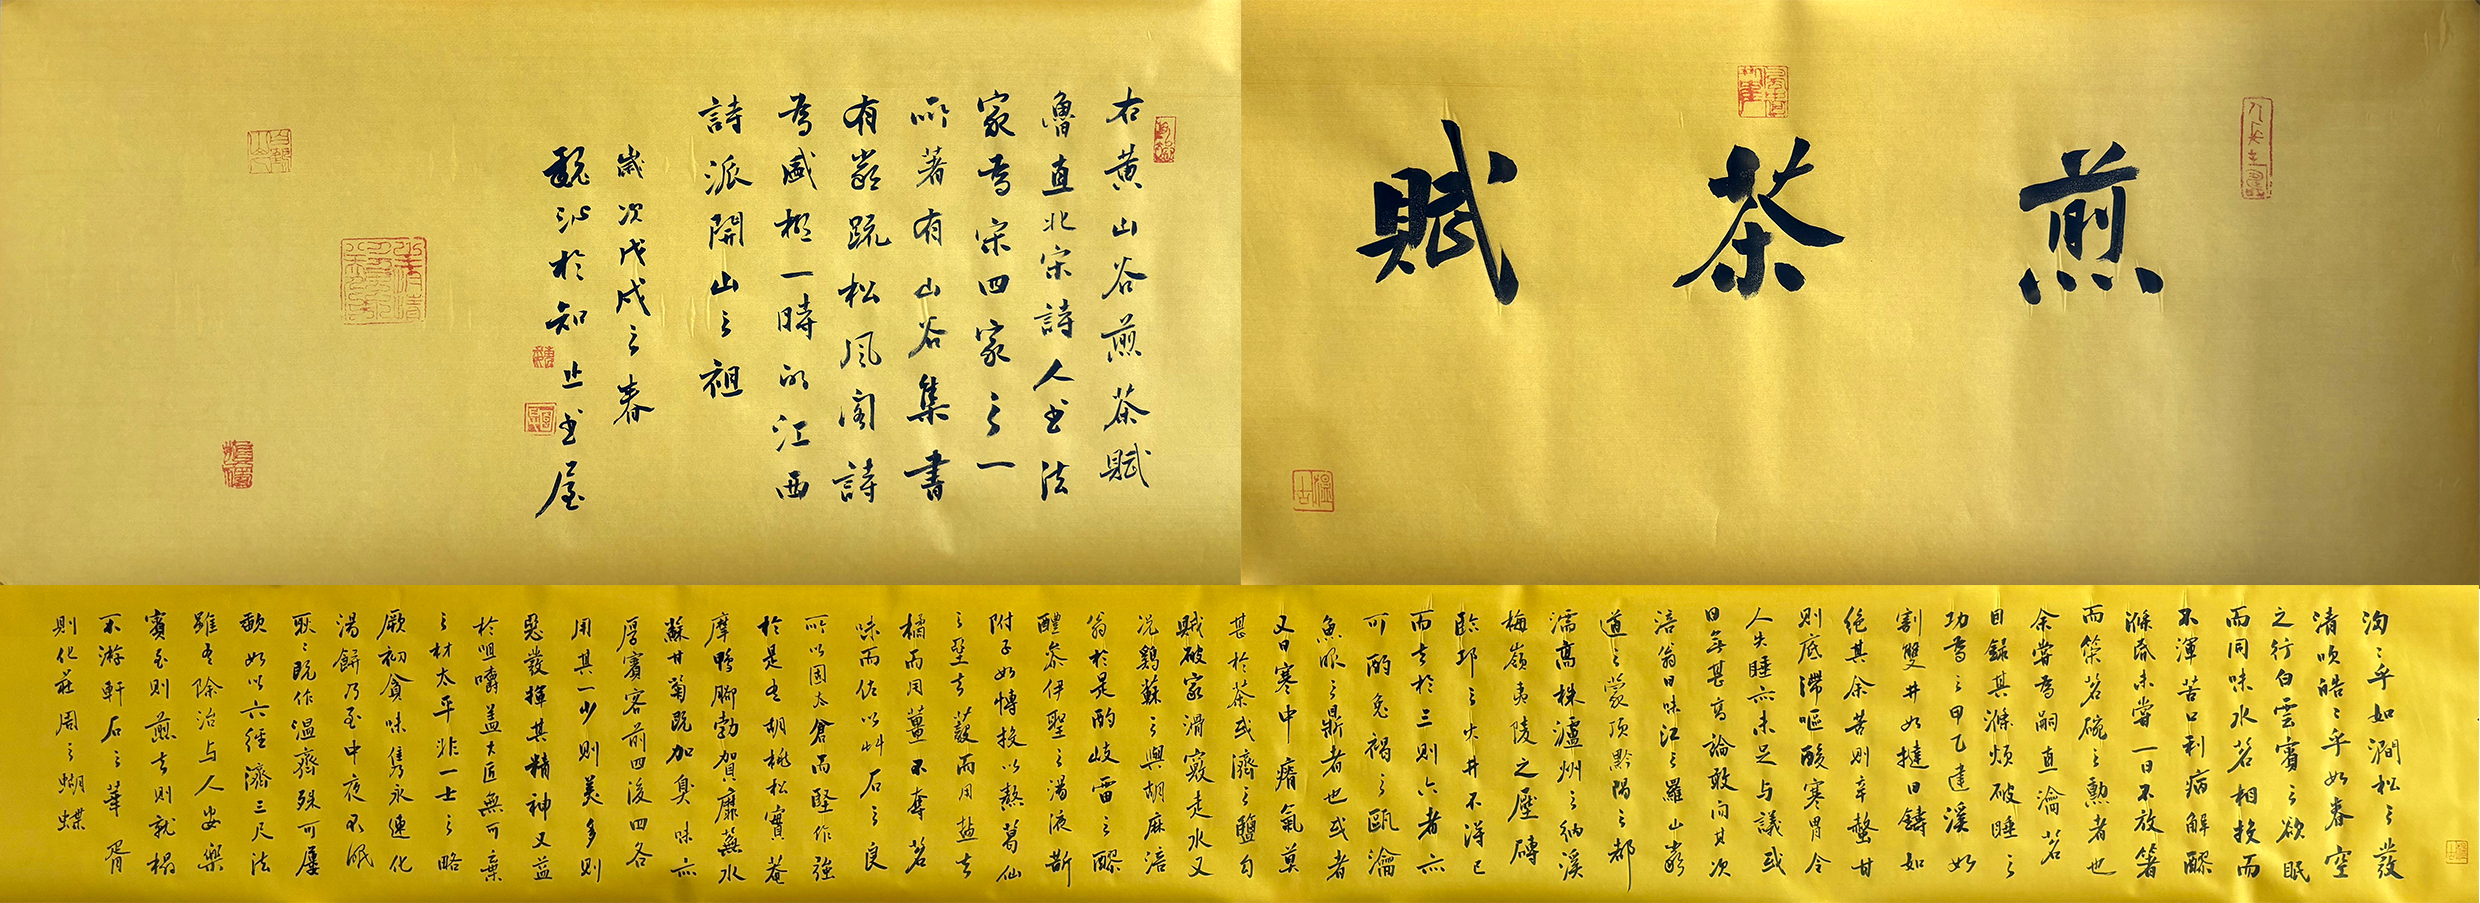 煎茶賦
洶々乎如澗松之發
清吹皓々乎如春空
之行白雲賓之欲眠
而同味水茗相投而
不渾苦口利病解醪
滌昏未嘗一日不放箸
而策茗碗之勲者也
余嘗為嗣直瀹茗
目録其滌煩破睡之
功為之甲乙建溪如
割雙井如撻日鑄如
絕其余苦則辛螫甘
則底滯嘔酸寒胃令
人失睡亦未足与議或
曰無甚高論敢问其次
涪翁曰味江之羅山嚴
道之蒙頂黔陽之都
濡高株瀘州之納溪
梅嶺夷陵之壓磚
臨邛之火井不得已
而去於三則六者亦
可酌兔褐之甌瀹
魚眼之鼎者也或者
又曰寒中瘠氣莫
甚於茶或濟之鹽勾
賊破家滑竅走水又
況鷄蘇之與胡麻涪
翁於是酌岐雷之醪
醴參伊聖之湯液斮
附子如博投以熬葛仙
之堊去藙而用盐去
橘而用薑不奪茗
味而佐以艸石之良
所以固太倉而堅作強
於是有胡桃松實菴
摩鴨脚勃賀靡蕪水
蘇甘菊既加臭味亦
厚賓客前四後四各
用其一少則美多則
惡發揮其精神又益
於咀嚼盖大匠無可棄
之材太平非一士之略
厥初貪味雋永速化
湯餅乃至中夜不眠
耿々既作温齊殊可屢
歃如以六經濟三尺法
雖有除治与人安樂
賓至則煎去則就榻
不游軒石之華胥
則化莊周之蝴蝶
右黄山谷煎茶賦
魯直北宋詩人书法
家為宋四家之一
所著有山谷集書
有嵩跣松風閣詩
為盛極一時的江西
詩派開山之祖
歲次戊戌之春
魏沁於知止书屋